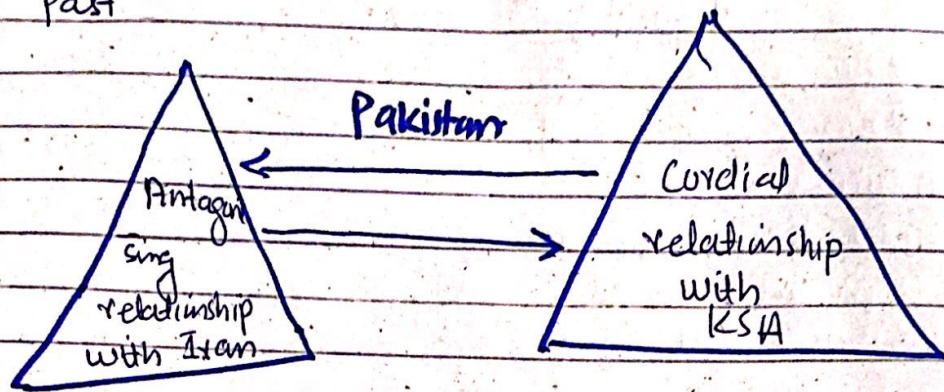 past
Pakistan
Antagoni
sing
relationship
with Iran
Cordial
relationship
with
KSA